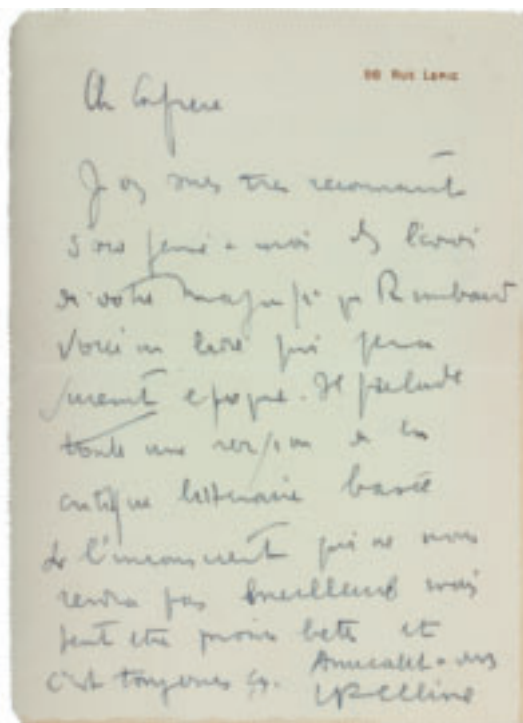 98 RUE LEPIC
Ch Confrère
Je vs suis très reconnaissant
d'avoir pensé à moi ds l'envoi
de votre magnifique Rimbaud
Voici un livre qui fera
sûrement époque. Il prélude
toute une version de la
critique littéraire basée
de l'inconscient qui ne nous
rendra pas meilleurs mais
peut être moins bêtes et
c'est toujours ça. Amicalet à vs
LF Céline